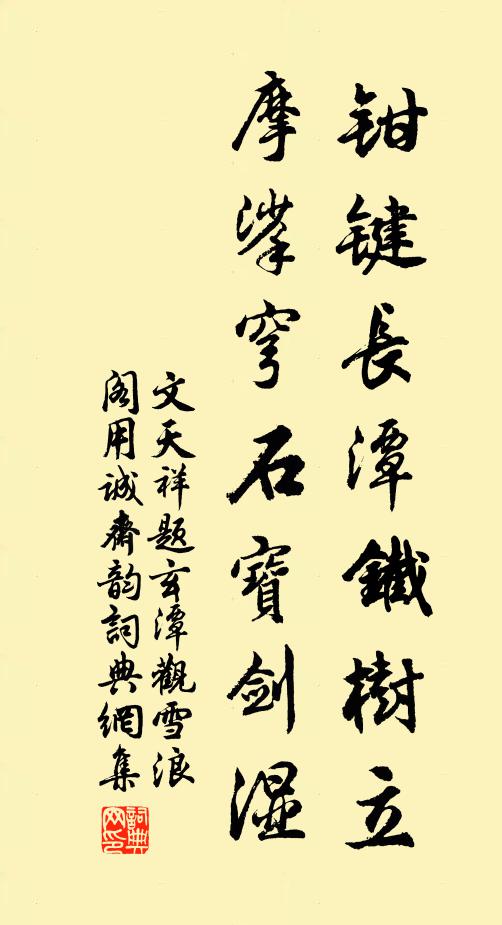 钳键長潭鐵樹立
摩挲穹石寶劍湿
文天祥題玄潭觀雪浪
阁用诚齋韵詞典網集
詞典网印